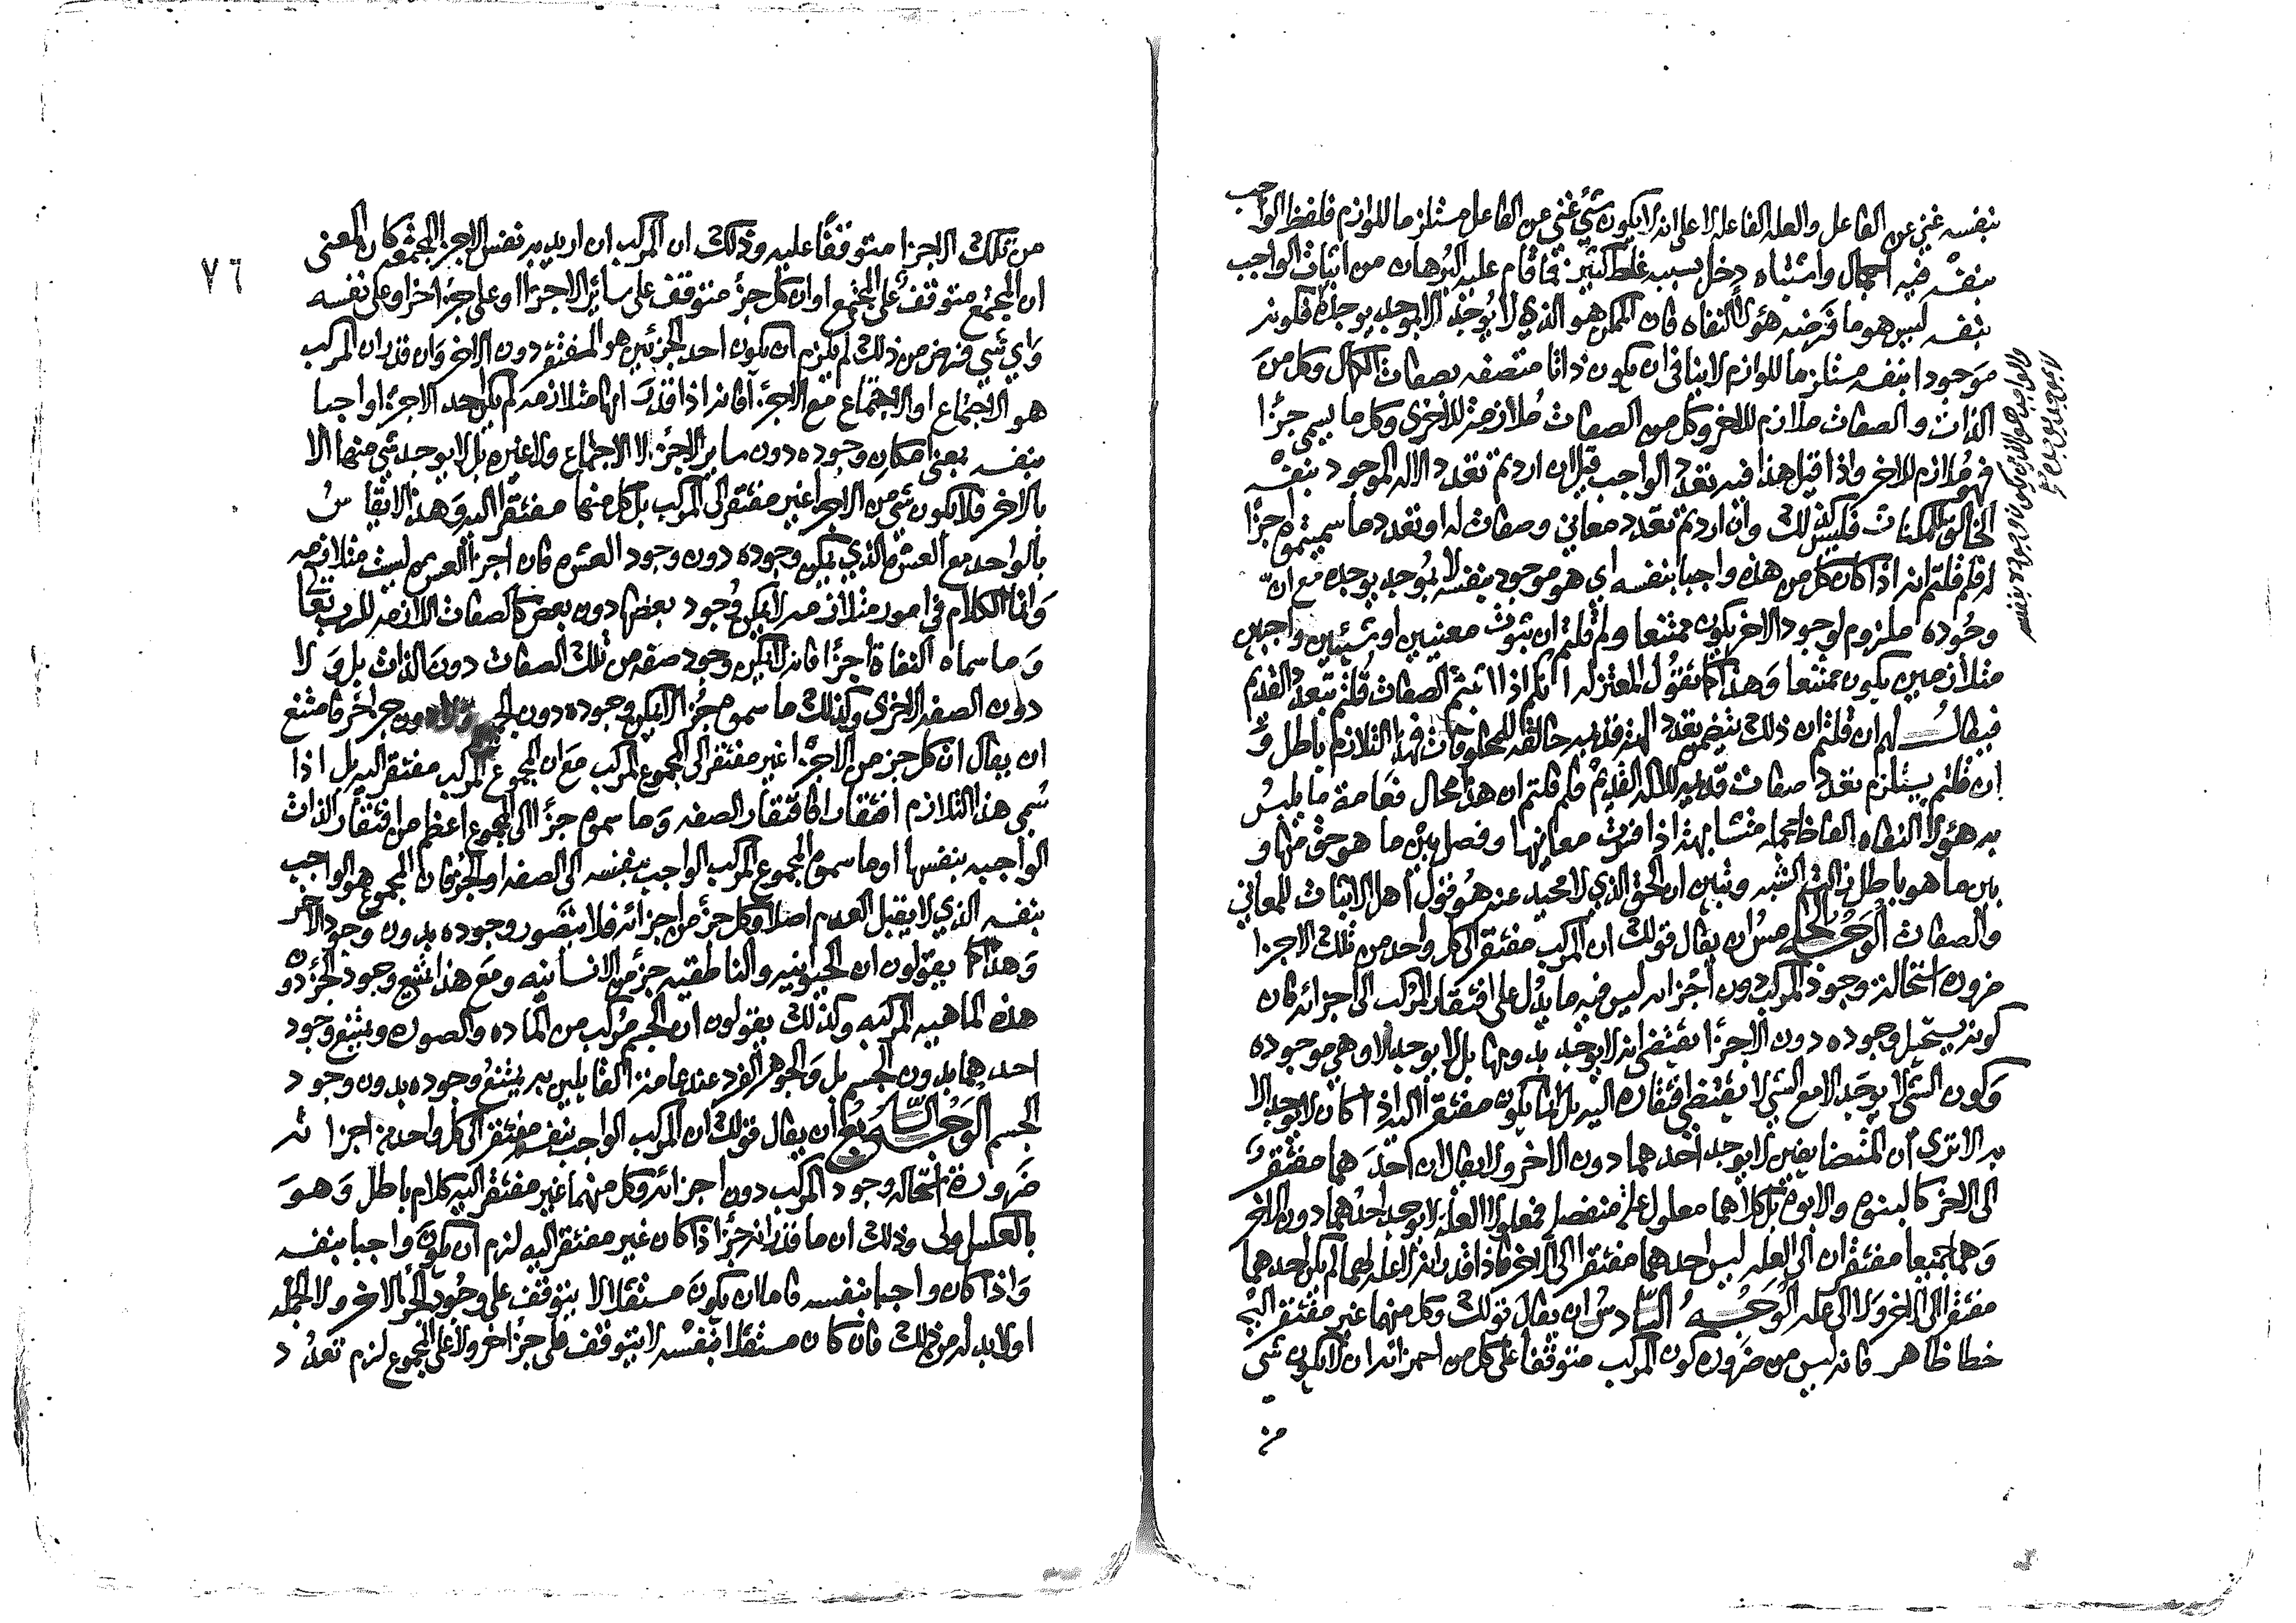 بنفسه غني عن الفاعل والعله الفاعله لا على انه لا يكون شيء غني عن الفاعل مستلزما للوازم فلفظ الواجب
بنفسه فيه اجمال واشتباه دخل بسببه غلط كثير فما قام عليه البرهان من اثبات الواجب
بنفسه ليس هو ما فرضه هؤلا النفاه فان الممكن هو الذي لا يوجد الا بموجد يوجده فكونه
موجودا بنفسه مستلزما للوازم لا ينافي ان يكون ذاتا متصفه بصفات الكمال وكل من
الذات والصفات ملازم للاخر وكل من الصفات ملازمة للاخرى وكل ما يسمى جزا
فهو ملازم للاخر واذا قيل هذا فيه تعدد الواجب قيل ان اردتم تعدد الاله الموجود بنفسه
الخالق للممكنات فليس كذلك وان اردتم تعدد معاني وصفات له او تعدد ما سميتموه اجزا
له فلم قلتم انه اذا كان كل من هذه واجبا بنفسه اي هو موجود بنفسه لا بموجد يوجده مع ان
وجوده ملزوم لوجود الاخر يكون ممتنعا ولم قلتم ان ثبوت معنيين او شيئين واجبين
متلازمين يكون ممتنعا وهذا كما تقول المعتزله انكم اذا اثبتم الصفات قلتم بتعدد القديم
فيقال لهم ان قلتم ان ذلك يتضمن تعدد الهة قديمه خالقه للمخلوقات فهذا التلازم باطل و
ان قلتم يستلزم تعدد صفات قديمه للاله القديم فلم قلتم ان هذا محال فعامة ما يلبس
به هؤلا النفاه الفاظ مجمله متشابهة اذا فسرت معانيها وفصل بين ما هو حق منها و
بين ما هو باطل زالت الشبه وتبين ان الحق الذي لا محيد عنه هو قول اهل الاثبات للمعاني
والصفات الوجه الخامس ان يقال قولك ان المركب مفتقر الى كل واحد من تلك الاجزا
ضرورة استحالة وجود المركب دون اجزائه ليس فيه ما يدل على افتقار المركب الى اجزائه فان
كونه يستحيل وجوده دون الاجزا يقتضي انه لا يوجد بدونها بل لا يوجد الا وهي موجوده
وكون الشي لا يوجد الا مع الشي لا يقتضي افتقاره اليه بل انما يكون مفتقرا اليه اذا كان لا يوجد الا
به الا ترى ان المتضايفين لا يوجد احدهما دون الاخر ولا يقال ان احدهما مفتقر
الى الاخر كالبنوه والابوه بل كلاهما معلول علة منفصله فمعلولا العلة لا يوجد احدهما دون الاخر
وهما جميعا مفتقران الى العله ليس احدهما مفتقرا الى الاخر فاذا قدر انه لا علة لهما لم يكن احدهما
مفتقرا الى الاخر ولا الى علة الوجه السادس ان يقال قولك وكل منهما غير مفتقر اليه
خطا ظاهر فانه ليس من ضرورة كون المركب متوقفا على كل من اجزائه ان لا يكون شي
من
والواجب هو الذي يكون وجوده بنفسه
لا بموجد يوجده صح
٧٦
من تلك الاجزا متوقفا عليه وذلك ان المركب ان اريد به نفس الاجزا المجتمعه كان المعنى
ان المجتمع متوقف على المجتمع او ان كل جزء متوقف على سائر الاجزا او على جزء اخر او على نفسه
واي شي فرض من ذلك لم يلزم ان يكون احد الجزئين هو المفتقر دون الاخر وان قدر ان المركب
هو الاجتماع او الاجتماع مع الاجزا فانه اذا قدر انها متلازمه لم يكن احد الاجزا واجبا
بنفسه بمعنى امكان وجوده دون ساير الاجزا لا الاجتماع ولا غيره بل لا يوجد شي منها الا
بالاخر فلا يكون شي من الاجزا غير مفتقر الى المركب بل كل منهما مفتقر اليه وهذا لا يقاس
بالواحد مع العشرة الذي يمكن وجوده دون وجود العشره فان اجزا العشره ليست متلازمه
وانما الكلام في امور متلازمه لا يمكن وجود بعضها دون بعض كالصفات اللازمه للرب تعالى
وما سماه النفاة اجزا فانه لا يمكن وجود صفه من تلك الصفات دون الذات بل ولا
دون الصفه الاخرى وكذلك ما سموه جزا لا يمكن وجوده دون ولا دون جزء اخر فامتنع
ان يقال ان كل جزء من الاجزا غير مفتقر الى المجموع المركب مع ان المجموع المركب مفتقر اليه بل اذا
سمي هذا التلازم افتقارا فافتقار الصفه وما سموه جزا الى المجموع اعظم من افتقار الذات
الواجبه بنفسها او ما سموه المجموع المركب الواجب بنفسه الى الصفه او الجزء فان المجموع هو الواجب
بنفسه الذي لا يقبل العدم اصلا وكل جزء من اجزائه فلا يتصور وجوده بدون وجود الاخر
وهذا كما يقولون ان الحيوانيه والناطقيه جزء من الانسانيه ومع هذا يمتنع وجود الجزء دون
هذه الماهيه المركبه وكذلك يقولون ان الجسم مركب من الماده والصوره ويمتنع وجود
احدهما بدون الجسم بل والجوهر الفرد عند عامة القايلين به يمتنع وجوده بدون وجود
الجسم الوجه السابع ان يقال قولك ان المركب الواجب بنفسه مفتقر الى كل واحد من اجزائه
ضرورة استحاله وجود المركب دون اجزائه وكل منهما غير مفتقر اليه كلام باطل وهو
بالعكس اولى وذلك ان ما قدر انه جزء اذا كان غير مفتقر اليه لزم ان يكون واجبا بنفسه
واذا كان واجبا بنفسه فاما ان يكون مستقلا لا يتوقف على وجود الجزء الاخر ولا الجمله
او لا بد له من ذلك فان كان مستقلا بنفسه لا يتوقف على جزء اخر ولا على المجموع لزم تعدد